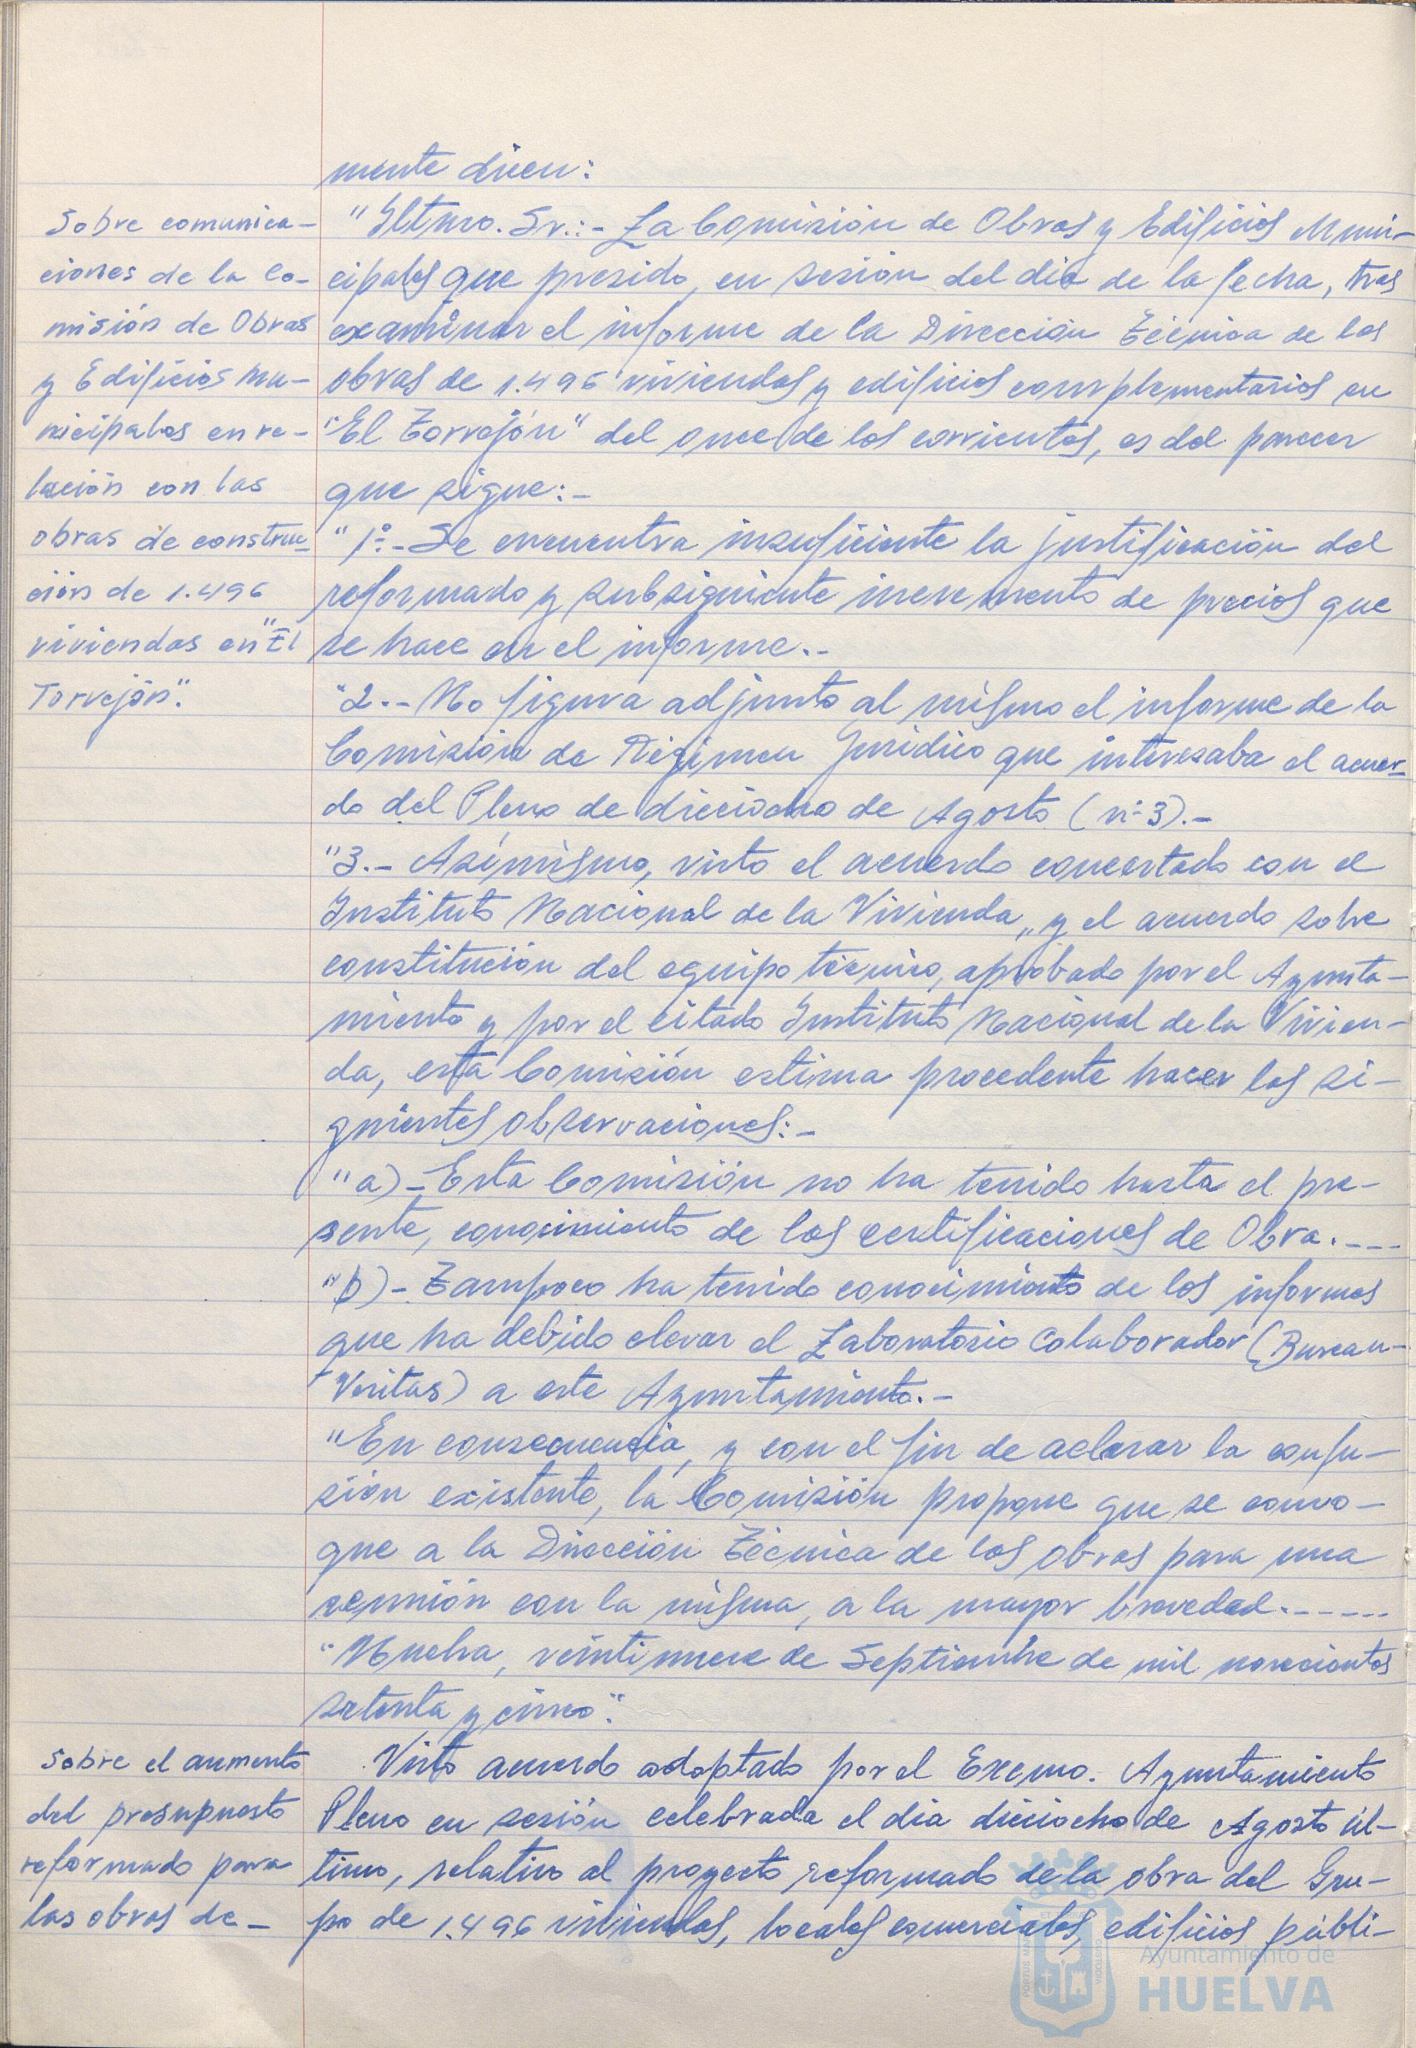 mente dicen:
Sobre comunica-
ciones de la Co-
misión de Obras
y Edificios mu-
nicipales en re-
lación con las
obras de construc-
ción de 1.496
viviendas en "El
Torrejón".
"Iltmo. Sr.:- La Comisión de Obras y Edificios Muni-
cipales que presido, en sesión del día de la fecha, tras
examinar el informe de la Dirección Técnica de las
obras de 1.496 viviendas y edificios complementarios en
"El Torrejón" del once de los corrientes, es del parecer
que sigue:-
"1º.- Se encuentra insuficiente la justificación del
reformado y subsiguiente incremento de precios que
se hace en el informe.-
"2.- No figura adjunto al mismo el informe de la
Comisión de Régimen Jurídico que interesaba el acuer-
do del Pleno de dieciocho de Agosto (nº 3).-
"3.- Asímismo, visto el acuerdo concertado con el
Instituto Nacional de la Vivienda, y el acuerdo sobre
constitución del equipo técnico, aprobado por el Ayunta-
miento y por el citado Instituto Nacional de la Vivien-
da, esta Comisión estima procedente hacer las si-
guientes observaciones:-
"a)- Esta Comisión no ha tenido hasta el pre-
sente, conocimiento de las certificaciones de Obra.---
"b)- Tampoco ha tenido conocimiento de los informes
que ha debido elevar el Laboratorio Colaborador (Bureau-
Veritas) a este Ayuntamiento.-
"En consecuencia, y con el fin de aclarar la confu-
sión existente, la Comisión propone que se convo-
que a la Dirección Técnica de las obras para una
reunión con la misma, a la mayor brevedad.-----
"Huelva, veintinueve de Septiembre de mil novecientos
setenta y cinco".
Sobre el aumento
del presupuesto
reformado para
las obras de-
Visto acuerdo adoptado por el Excmo. Ayuntamiento
Pleno en sesión celebrada el día dieciocho de Agosto úl-
timo, relativo al proyecto reformado de la obra del Gru-
po de 1.496 viviendas, locales comerciales, edificios públi-
Ayuntamiento de
HUELVA